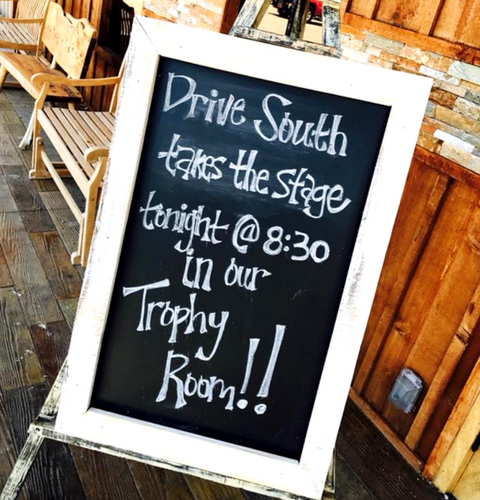 Drive South
takes the stage
tonight @ 8:30
in our
Trophy
Room!!